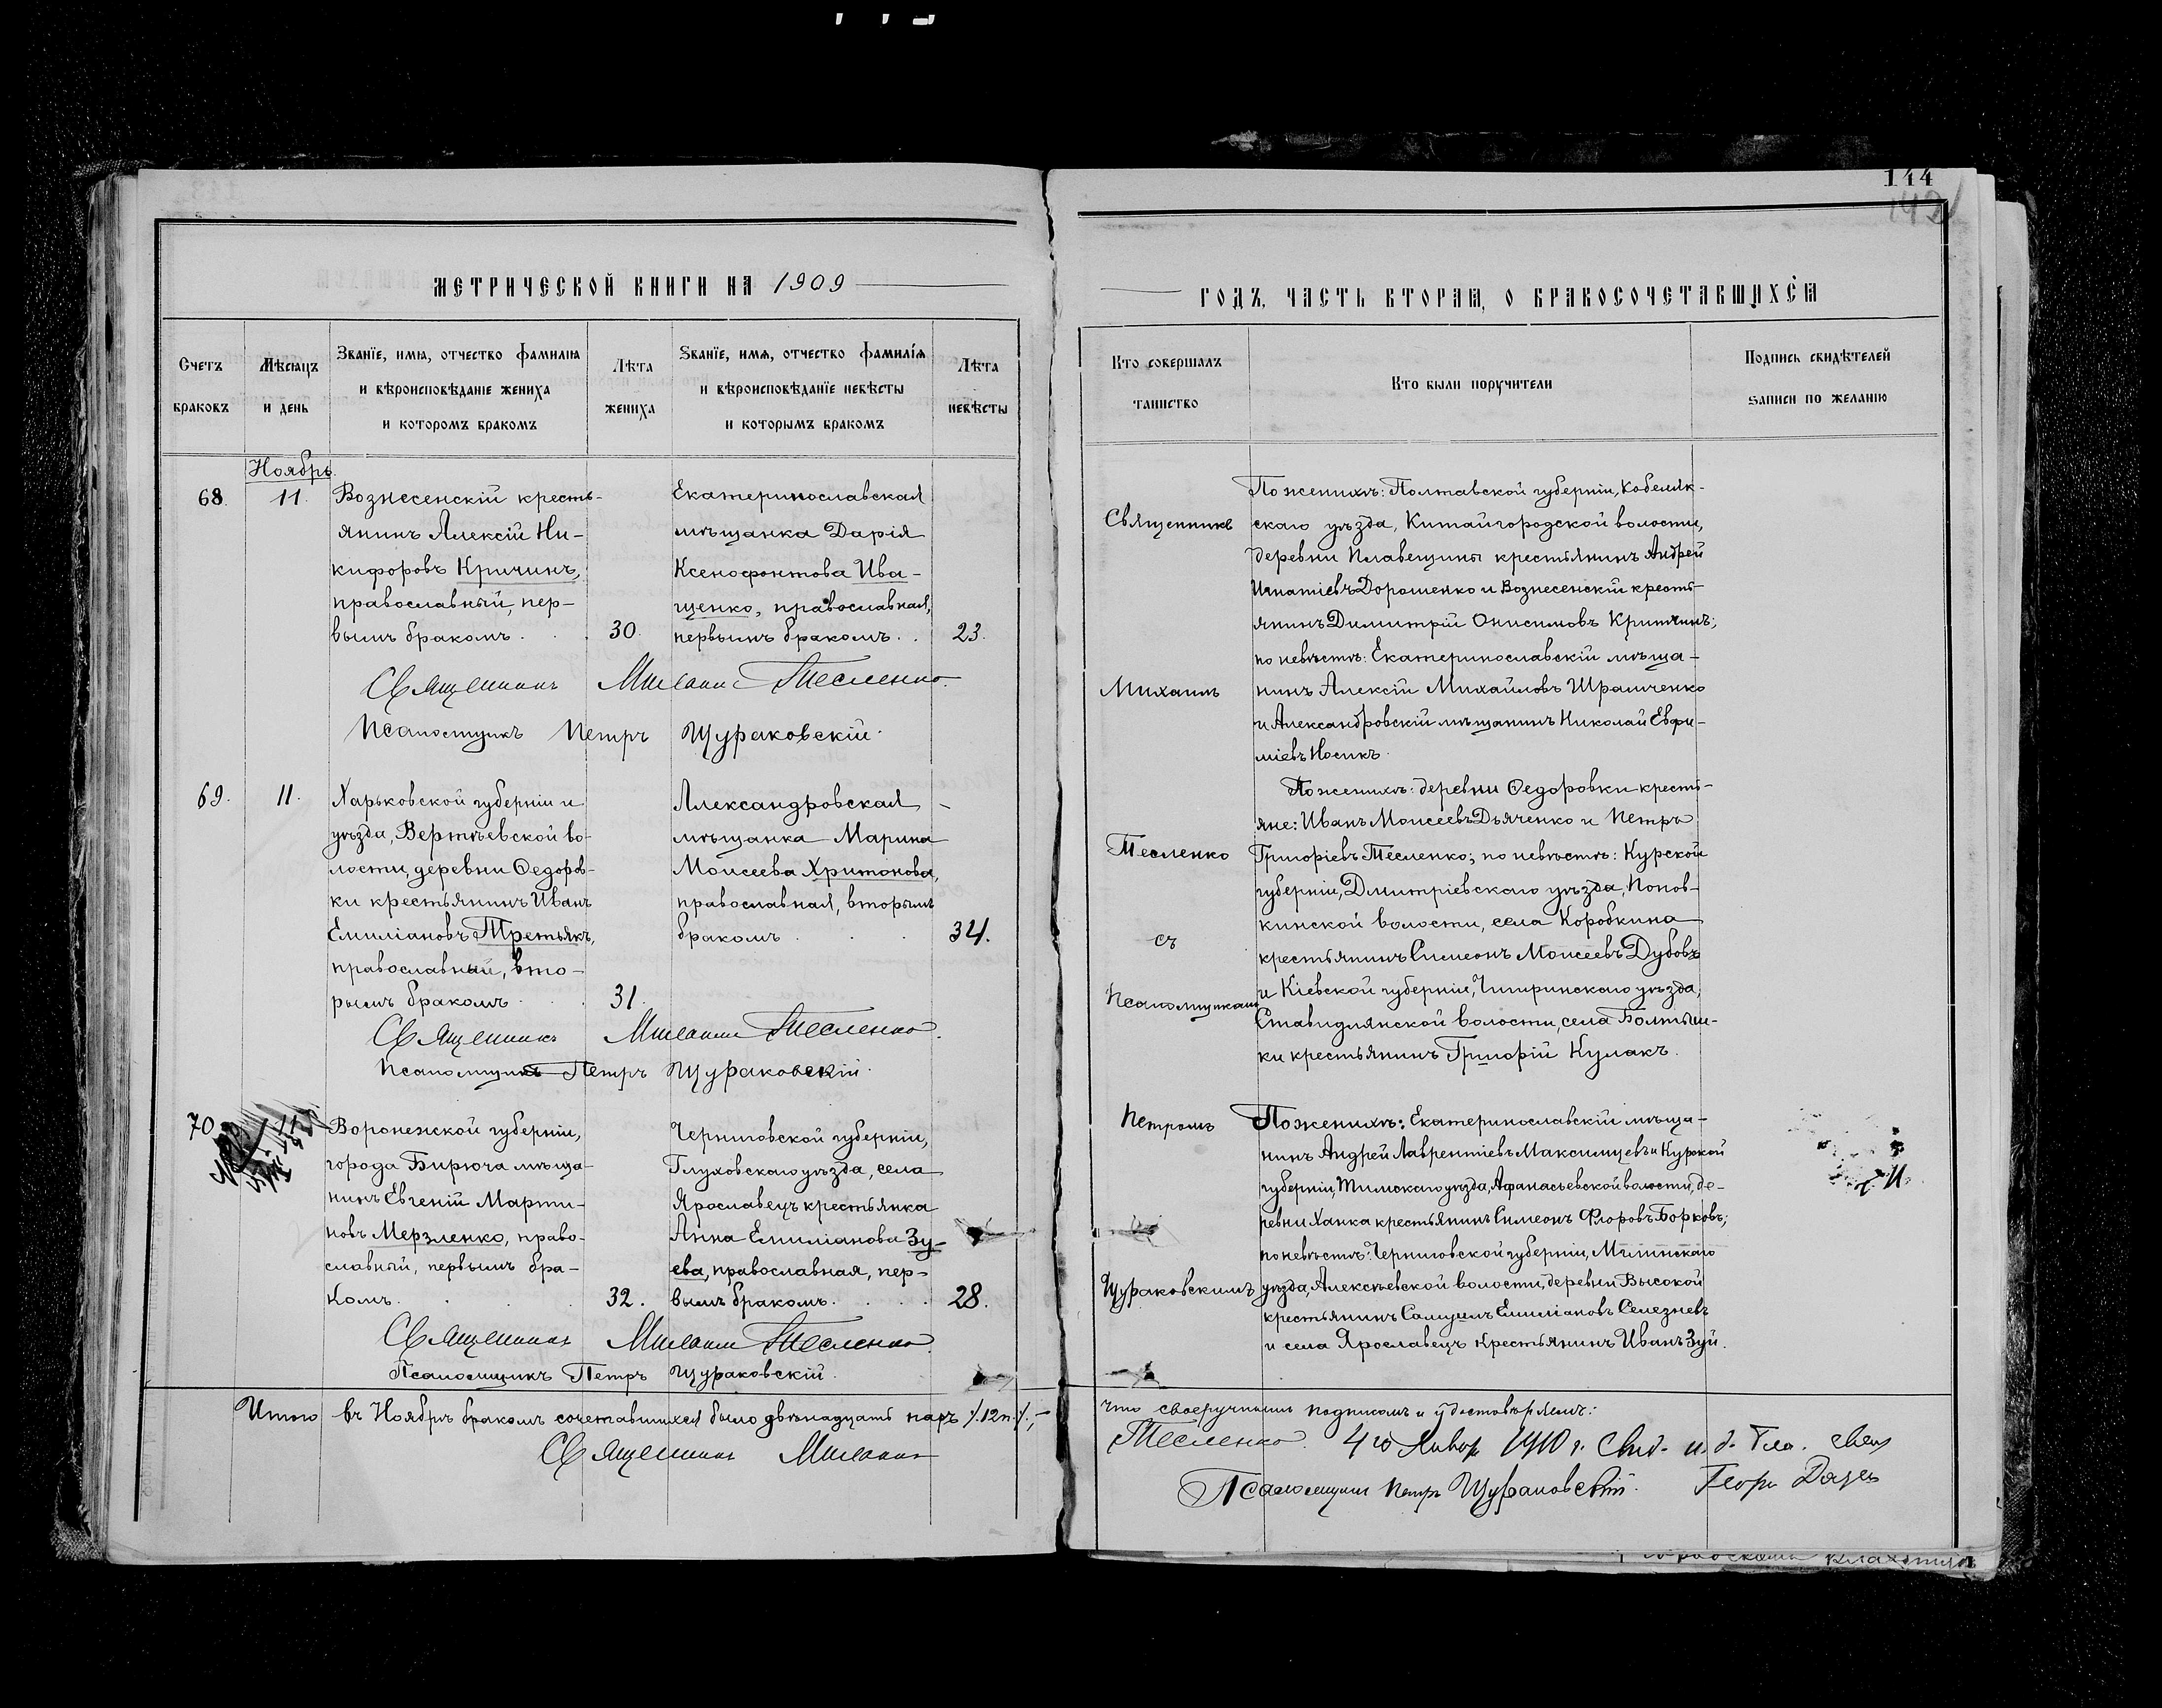 МЕТРИЧЕСКОЙ КНИГИ НА 1909
Счетъ
браковъ
Мѣсяцъ
и день
Званїе, имя, отчество фамилія
и вѣроисповѣданїе жениха
и которомъ бракомъ
Лѣта
жениха
Званїе, имя, отчество фамилія
и вѣроисповѣданїе невѣсты
и которымъ бракомъ
Лѣта
невѣсты
Ноябрь
68. 11.
Вознесенскій кресть-
янинъ Алексій Ни-
кифоровъ Кричинъ,
православный, пер-
вымъ бракомъ. 30.
Екатеринославская
мѣщанка Дарія
Ксенофонтова Ива-
щенко, православная,
первымъ бракомъ. 23.
Священникъ Михаилъ Тесленко.
Псаломщикъ Петръ Щураковскій.
69. 11.
Харьковской губерніи и
уѣзда, Вертѣевской во-
лости, деревни Ѳедоров-
ки крестьянинъ Иванъ
Емиліановъ Третьякъ,
православный, вто-
рымъ бракомъ. 31.
Александровская
мѣщанка Марина
Моисеева Хритонова,
православная, вторымъ
бракомъ 34.
Священникъ Михаилъ Тесленко.
Псаломщикъ Петръ Щураковскій.
70. 11.
Воронежской губерніи,
города Бирюча мѣща-
нинъ Евгеній Марти-
новъ Мерзленко, право-
славный, первымъ бра-
комъ. 32.
Черниговской губерніи,
Глуховскаго уѣзда, села
Ярославецъ крестьянка
Анна Емиліанова Зу-
ева, православная, пер-
вымъ бракомъ. 28.
Священникъ Михаилъ Тесленко.
Псаломщикъ Петръ Щураковскій.
Итого въ Ноябрѣ бракомъ сочетавшихся было двѣнадцать паръ /.12 п./.,—
Священникъ Михаилъ
144
142
ГОДЪ, ЧАСТЬ ВТОРАЯ, О БРАКОСОЧЕТАВШИХСЯ
Кто совершалъ
таинство
Кто были поручители
Подпись свидѣтелей
записи по желанію
Священникъ
Михаилъ
Тесленко
съ
Псаломщикомъ
Петромъ
Щураковскимъ
По женихѣ: Полтавской губерніи, Кобеляк-
скаго уѣзда, Китайгородской волости,
деревни Плавещины крестьянинъ Андрей
Игнатіевъ Дорошенко и Вознесенскій кресть-
янинъ Димитрій Онисимовъ Критчинъ;
по невѣстѣ: Екатеринославскій мѣща-
нинъ Алексій Михайловъ Шрамченко
и Александровскій мѣщанинъ Николай Евфи-
міевъ Носикъ.
По женихѣ: деревни Ѳедоровки кресть-
яне: Иванъ Моисеевъ Дьяченко и Петръ
Григоріевъ Тесленко; по невѣстѣ: Курской
губерніи, Дмитріевскаго уѣзда, Попов-
кинской волости, села Коробкина
крестьянинъ Симеонъ Моисеевъ Дубовъ
и Кіевской губерніи, Чигиринскаго уѣзда,
Ставидлянской волости, села Болтыш-
ки крестьянинъ Григорій Кулакъ.
По женихѣ: Екатеринославскій мѣща-
нинъ Андрей Лаврентіевъ Максимцевъ и Курской
губерніи, Тимскаго уѣзда, Афанасьевской волости, де-
ревни Ханка крестьянинъ Симеонъ Флоровъ Борковъ;
по невѣстѣ: Черниговской губерніи, Мглинскаго
уѣзда, Алексѣевской волости, деревни Высокой
крестьянинъ Самуилъ Емиліановъ Селезневъ
и села Ярославецъ крестьянинъ Иванъ Зуй.
что своеручнымъ подписомъ и удостовѣряемъ:
Тесленко. 4 го Январ 1910 г. Свид. и. д. Бла. свящ
Псаломщикъ Петръ Щураковскій. Георг